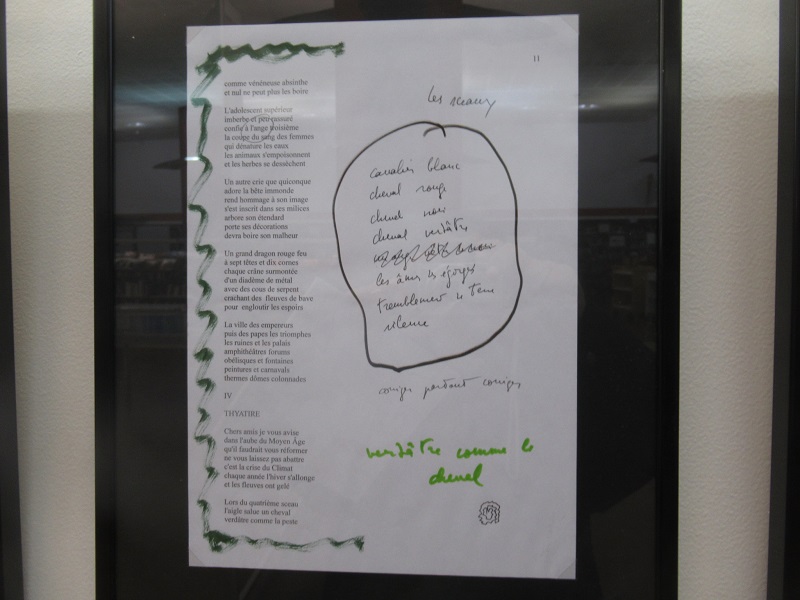 11
comme vénéneuse absinthe
et nul ne peut plus les boire
L'adolescent supérieur
imberbe et peu rassuré
confie à l'ange troisième
la coupe du sang des femmes
qui dénature les eaux
les animaux s'empoisonnent
et les herbes se dessèchent
Un autre crie que quiconque
adore la bête immonde
rend hommage à son image
s'est inscrit dans ses milices
arbore son étendard
porte ses décorations
devra boire son malheur
Un grand dragon rouge feu
à sept têtes et dix cornes
chaque crâne surmontée
d'un diadème de métal
avec des cous de serpent
crachant des fleuves de bave
pour engloutir les espoirs
La ville des empereurs
puis des papes les triomphes
les ruines et les palais
amphithéâtres forums
obélisques et fontaines
peintures et carnavals
thermes dômes colonnades
IV
THYATIRE
Chers amis je vous avise
dans l'aube du Moyen Âge
qu'il faudrait vous réformer
ne vous laissez pas abattre
c'est la crise du Climat
chaque année l'hiver s'allonge
et les fleuves ont gelé
Lors du quatrième sceau
l'aigle salue un cheval
verdâtre comme la peste
les sceaux
cavalier blanc
cheval rouge
cheval noir
cheval verdâtre
les âmes des égorgés
tremblement de terre
silence
corriger partout corriger
verdâtre comme le
cheval